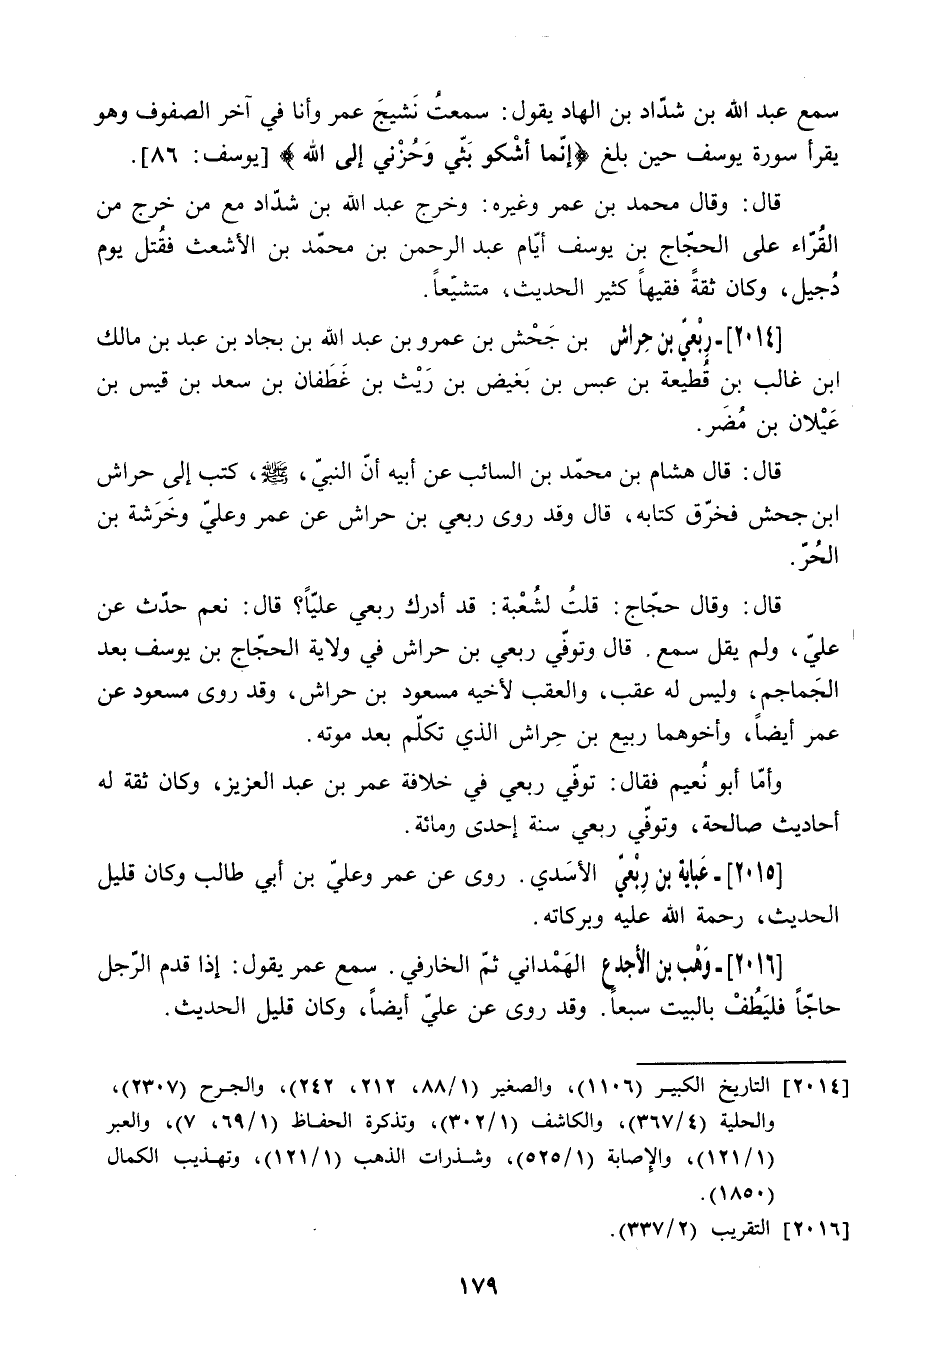 سمع عبد الله بن شدّاد بن الهاد يقول: سمعتُ نَشيجَ عمر وأنا في آخر الصفوف وهو
يقرأ سورة يوسف حين بلغ ﴿إنّما أشْكو بَثّي وَحُزْني إلى الله﴾ [يوسف: ٨٦].
قال: وقال محمد بن عمر وغيره: وخرج عبد الله بن شدّاد مع من خرج من
القُرّاء على الحجّاج بن يوسف أيّام عبد الرحمن بن محمّد بن الأشعث فقُتل يوم
دُجيل، وكان ثقةً فقيهاً كثير الحديث، متشيّعاً.
[٢٠١٤]ـ رِبْعيّ بن حِراش بن جَحْش بن عمرو بن عبد الله بن بجاد بن عبد بن مالك
ابن غالب بن قُطيعة بن عبس بن بَغيض بن رَيْث بن غَطَفان بن سعد بن قيس بن
عَيْلان بن مُضَر.
قال: قال هشام بن محمّد بن السائب عن أبيه أنّ النبيّ، ﷺ، كتب إلى حراش
ابن جحش فخرّق كتابه، قال وقد روى ربعي بن حراش عن عمر وعليّ وخَرَشة بن
الحُرّ.
قال: وقال حجّاج: قلتُ لشُعْبة: قد أدرك ربعي عليّاً؟ قال: نعم حدّث عن
عليّ، ولم يقل سمع. قال وتوفّي ربعي بن حراش في ولاية الحجّاج بن يوسف بعد
الجَماجم، وليس له عقب، والعقب لأخيه مسعود بن حراش، وقد روى مسعود عن
عمر أيضاً، وأخوهما ربيع بن حِراش الذي تكلّم بعد موته.
وأمّا أبو نُعيم فقال: توفّي ربعي في خلافة عمر بن عبد العزيز، وكان ثقة له
أحاديث صالحة، وتوفّي ربعي سنة إحدى ومائة.
[٢٠١٥]ـ عَباية بن رِبْعيّ الأسَدي. روى عن عمر وعليّ بن أبي طالب وكان قليل
الحديث، رحمة الله عليه وبركاته.
[٢٠١٦]ـ وَهْب بن الأجدع الهَمْداني ثمّ الخارفي. سمع عمر يقول: إذا قدم الرّجل
حاجّاً فليَطُفْ بالبيت سبعاً. وقد روى عن عليّ أيضاً، وكان قليل الحديث.
[٢٠١٤] التاريخ الكبير (١١٠٦)، والصغير (٨٨/١، ٢١٢، ٢٤٢)، والجرح (٢٣٠٧)،
والحلية (٣٦٧/٤)، والكاشف (٣٠٢/١)، وتذكرة الحفاظ (٦٩/١، ٧)، والعبر
(١٢١/١)، والإصابة (٥٢٥/١)، وشذرات الذهب (١٢١/١)، وتهذيب الكمال
(١٨٥٠).
[٢٠١٦] التقريب (٣٣٧/٢).
١٧٩